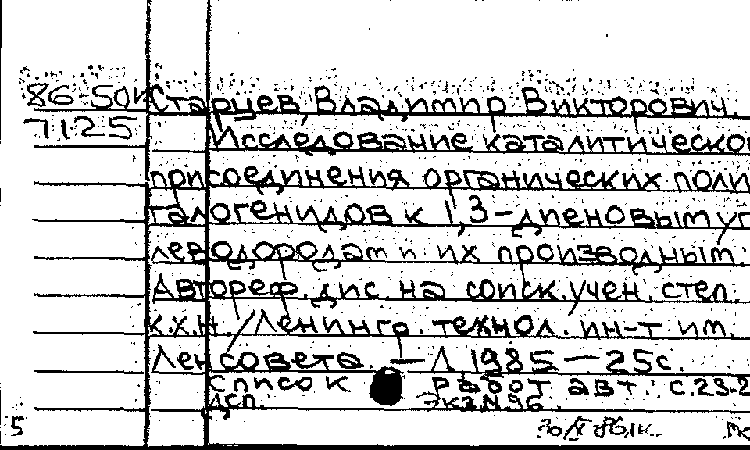 86-50к Старцев, Владимир Викторович.
7125 Исследование каталитическо
присоединения органических поли
галогенидов к 1,3-диеновым уг
леводородам и их производным.
Автореф. дис. на соиск. учен. степ.
к.х.н. / Ленингр. технол. ин-т им.
Ленсовета. — Л. 1985 — 25с.
Список работ авт.: с.23-2
Дсп. Экз.N 96.
5